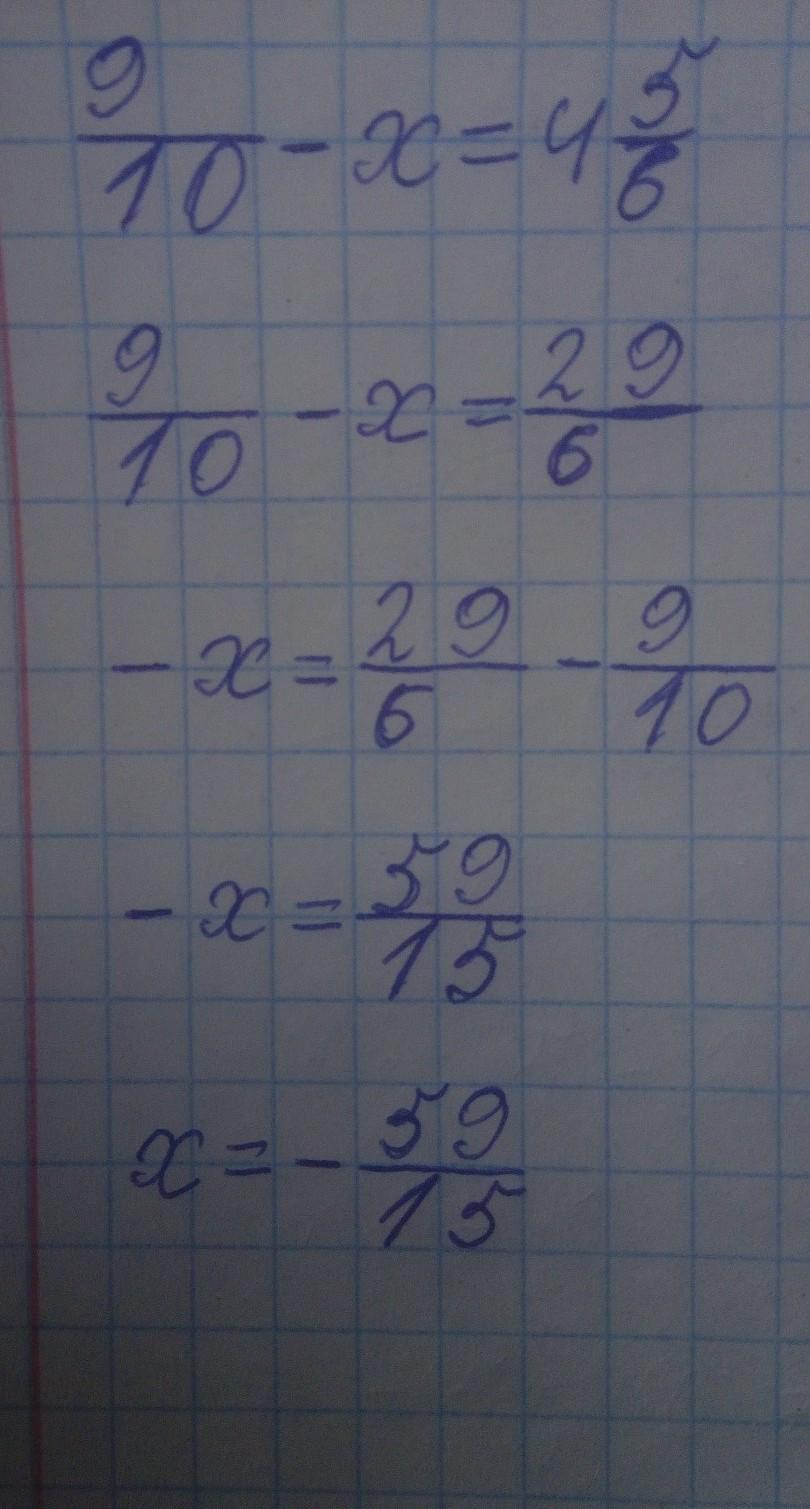 9/10 - x = 4 5/6
9/10 - x = 29/6
- x = 29/6 - 9/10
- x = 59/15
x = - 59/15